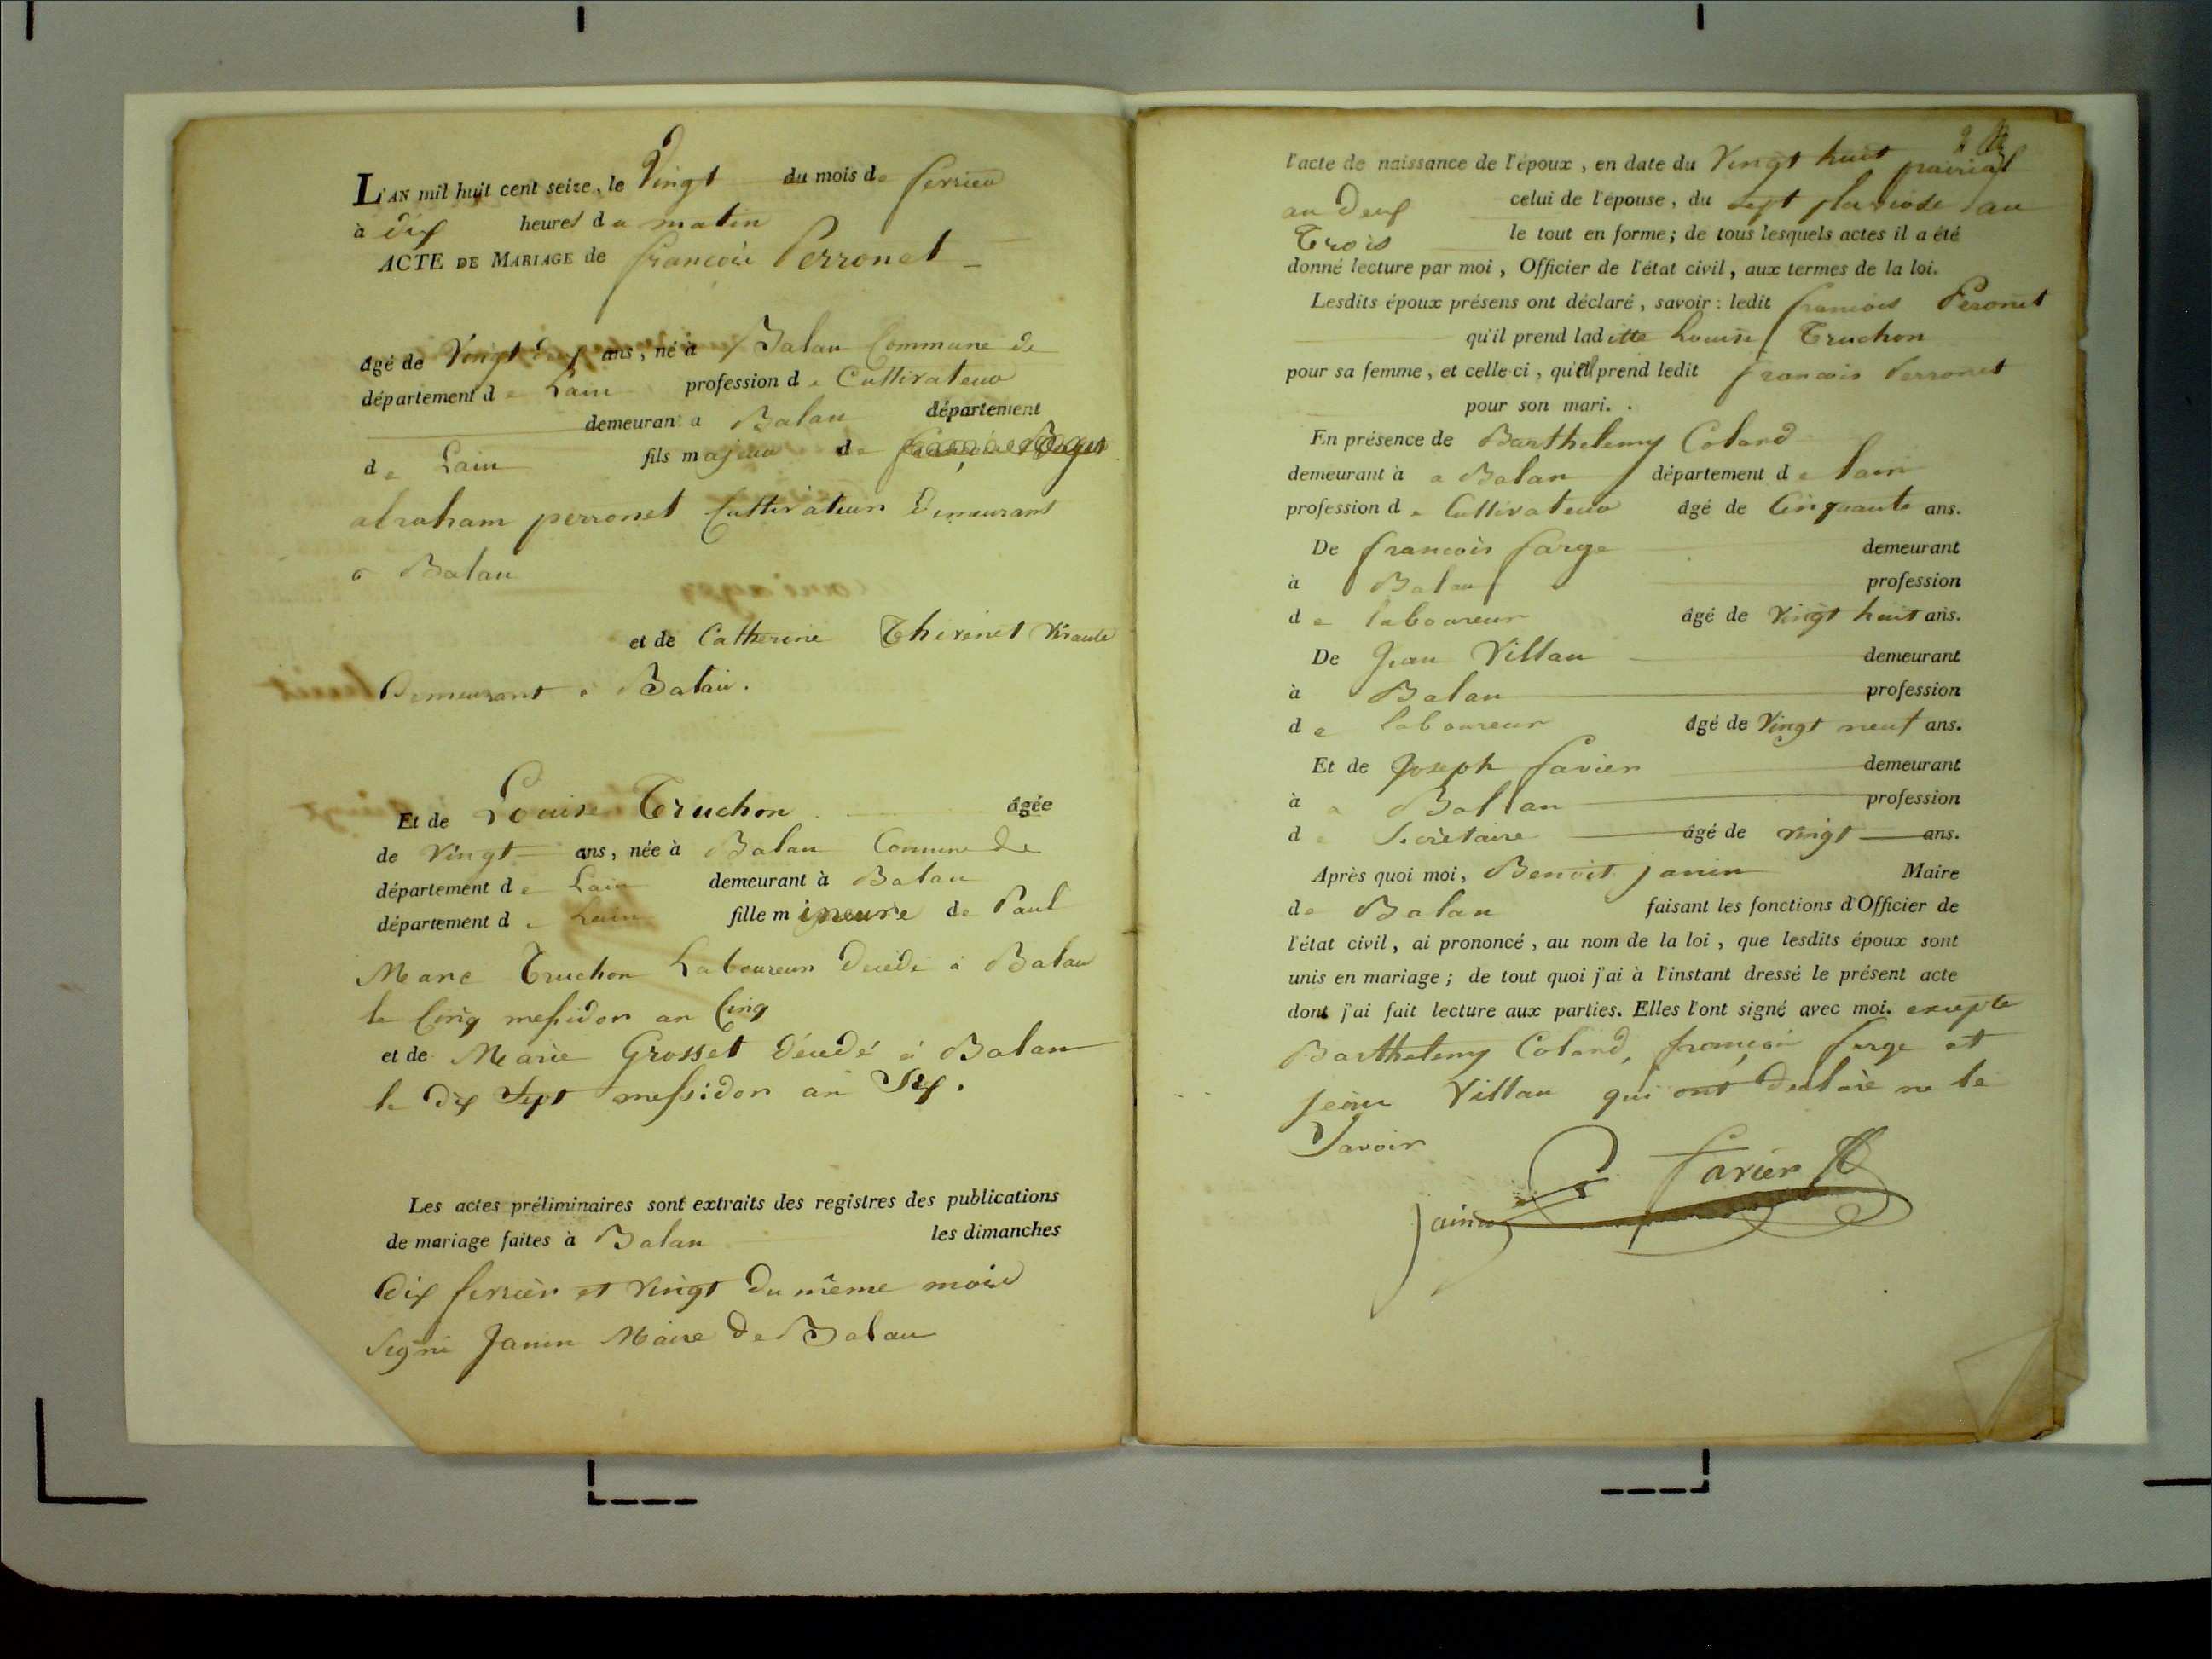 L'AN mil huit cent seize, le Vingt du mois de fevrier
à dix heures du matin
ACTE DE MARIAGE de françois Perronet
âgé de Vingt deux ans, né à Balan Commune de
département de Lain profession de Cultivateur
demeurant a Balan département
de Lain fils majeur de
abraham perronet Cultivateur Demeurant
a Balan
et de Catherine Thivenet Vivante
Demeurant a Balan.
Et de Louise Truchon âgée
de Vingt ans, née à Balan Commune de
département de Lain demeurant à Balan
département de Lain fille mineure de Paul
Marc Truchon Laboureur décédé à Balan
le Cinq messidor an Cinq
et de Marie Grosset décédé à Balan
le dix Sept messidor an Six.
Les actes préliminaires sont extraits des registres des publications
de mariage faites à Balan les dimanches
Dix fevrier et Vingt du même mois
Signé Janin Maire de Balan
l'acte de naissance de l'époux, en date du Vingt huit prairial
an deux celui de l'épouse, du Sept pluviose an
Trois le tout en forme; de tous lesquels actes il a été
donné lecture par moi, Officier de l'état civil, aux termes de la loi.
Lesdits époux présens ont déclaré, savoir: ledit francois Peronet
qu'il prend laditte Louise Truchon
pour sa femme, et celle-ci, qu'ell prend ledit francois Perronet
pour son mari.
En présence de Barthelemy Coland
demeurant à a Balan département de lain
profession de Cultivateur âgé de Cinquante ans.
De francois farge demeurant
à Balan profession
de laboureur âgé de Vingt huit ans.
De Jean Villan demeurant
à Balan profession
de laboureur âgé de Vingt neuf ans.
Et de Joseph favier demeurant
à a Ballan profession
de Secretaire âgé de vingt ans.
Après quoi moi, Benoit janin Maire
de Balan faisant les fonctions d'Officier de
l'état civil, ai prononcé, au nom de la loi, que lesdits époux sont
unis en mariage; de tout quoi j'ai à l'instant dressé le présent acte
dont j'ai fait lecture aux parties. Elles l'ont signé avec moi. excepte
Barthelemy Coland, françois farge et
jean Villan qui ont declaré ne le
Savoir
favier
janin